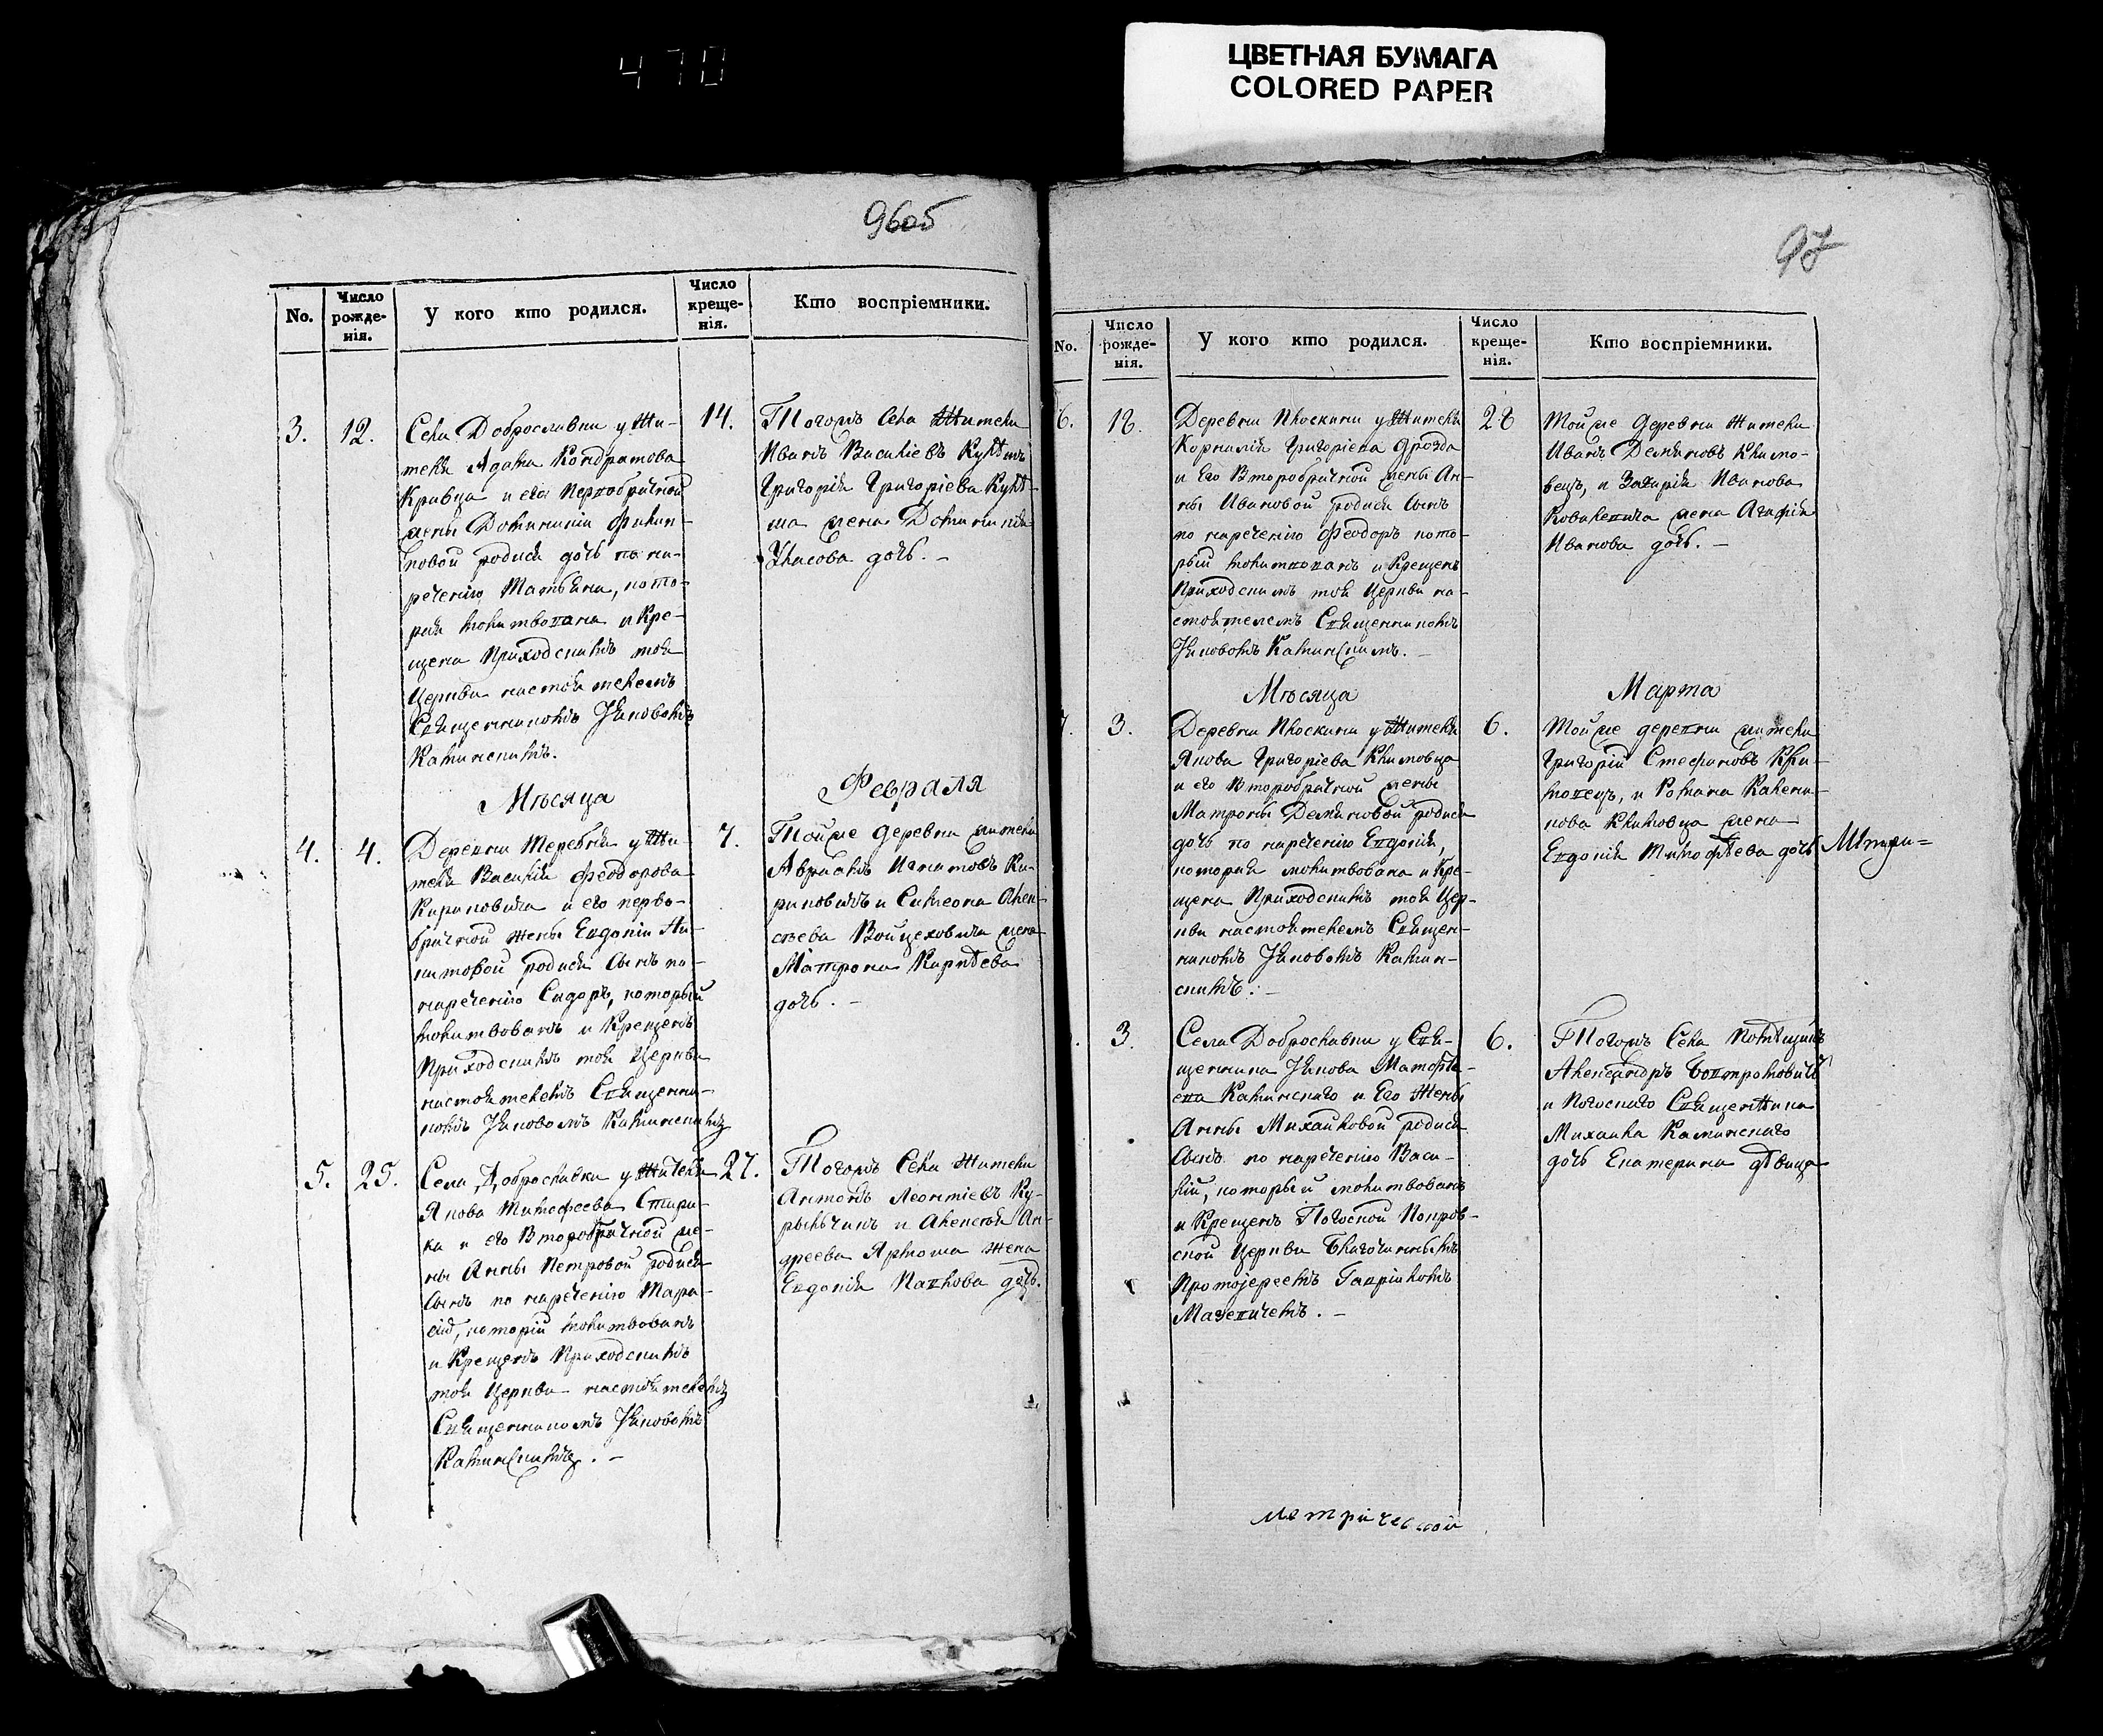 470
ЦВЕТНАЯ БУМАГА
COLORED PAPER
96об
No.
Число рожденія.
У кого кто родился.
Число крещенія.
Кто воспріемники.
3.
12.
Села Доброславки у Жи-
теля Адама Кондратова
Кравца и его первобрачной
жены Доминикіи Филип-
повой родися дочь по на-
реченію Татьяна, кото-
рая молитвована и Кре-
щена Приходскимъ тоя
Церкви настоятелемъ
Священникомъ Іяковомъ
Каминскимъ.
14.
Тогожъ Села Житель
Иванъ Василіевъ
Григорія Григоріева
жена Доминикія
дочь. -
Мѣсяца
Февраля
4.
4.
Деревни Теребня у Жи-
теля Василія Феодорова
Кириковича и его перво-
брачной жены Евдокіи Ти-
товой, родися сынъ по
нареченію Сидоръ, который
молитвованъ и Крещенъ
Приходскимъ тоя Церкви
настоятелемъ Священни-
комъ Іяковомъ Каминскимъ
7.
Тойже деревни житель
Авраамъ Игнатовъ Ки-
риковичъ и Симеона Алек-
сѣева Войцеховича жена
Матрона Карпѣева
дочь. -
5.
25.
Села Доброславки у Жителя
Якова Тимофеева
и его Второбрачной же-
ны Анны Петровой родися
сынъ по нареченію Тара-
сій, которій молитвованъ
и Крещенъ Приходскимъ
тоя Церкви настоятелемъ
Священникомъ Іяковомъ
Каминскимъ. -
27.
Тогожъ Села Житель
Антонъ Леонтіевъ Ку-
рыльчикъ и Алексѣя Ан-
дреева Ярмоша Жена
Евдокія Павлова дочь.
97
No.
Число рожденія.
У кого кто родился.
Число крещенія.
Кто воспріемники.
6.
18.
Деревни Плоскини у Жителя
Корнилія Григоріева Дрозда
и Его Второбрачной жены Ан-
ны Ивановой родися сынъ
по нареченію Феодоръ кото-
рый молитвованъ и Крещенъ
Приходскимъ тоя Церкви на-
стоятелемъ Священникомъ
Іяковомъ Каминскимъ. -
28
Тойже деревни Житель
Иванъ Демяновъ Климо-
вецъ, и Захарія Иванова
Ковалевича жена Агафія
Иванова дочь. -
Мѣсяца
Марта
7.
3.
Деревни Плоскини у Жителя
Якова Григоріева Климовца
и его второбрачной жены
Матроны Демяновой родися
дочь по нареченію Евдокія,
которая молитвована и Кре-
щена Приходскимъ тоя Цер-
кви настоятелемъ Священ-
никомъ Іяковомъ Камин-
скимъ. -
6.
Тойже деревни житель
Григорій Стефановъ Кли-
мовецъ, и Романа Калени-
кова Климовца жена
Евдокія Тимофѣева дочь
Мѣтри=
3.
Села Доброславки у Свя-
щенника Іякова Матфѣ-
ева Каминскаго и Его Жены
Анны Михайловой родися
сынъ по нареченію Васи-
лій, который молитвованъ
и Крещенъ Погоской Покров-
ской Церкви Благочиннымъ
Протоіереемъ Гавріиломъ
Мацевичемъ. -
6.
Тогожъ Села Помѣщикъ
Александръ
и Погоскаго Священника
Михаила Каминскаго
дочь Екатерина дѣвица
метрической